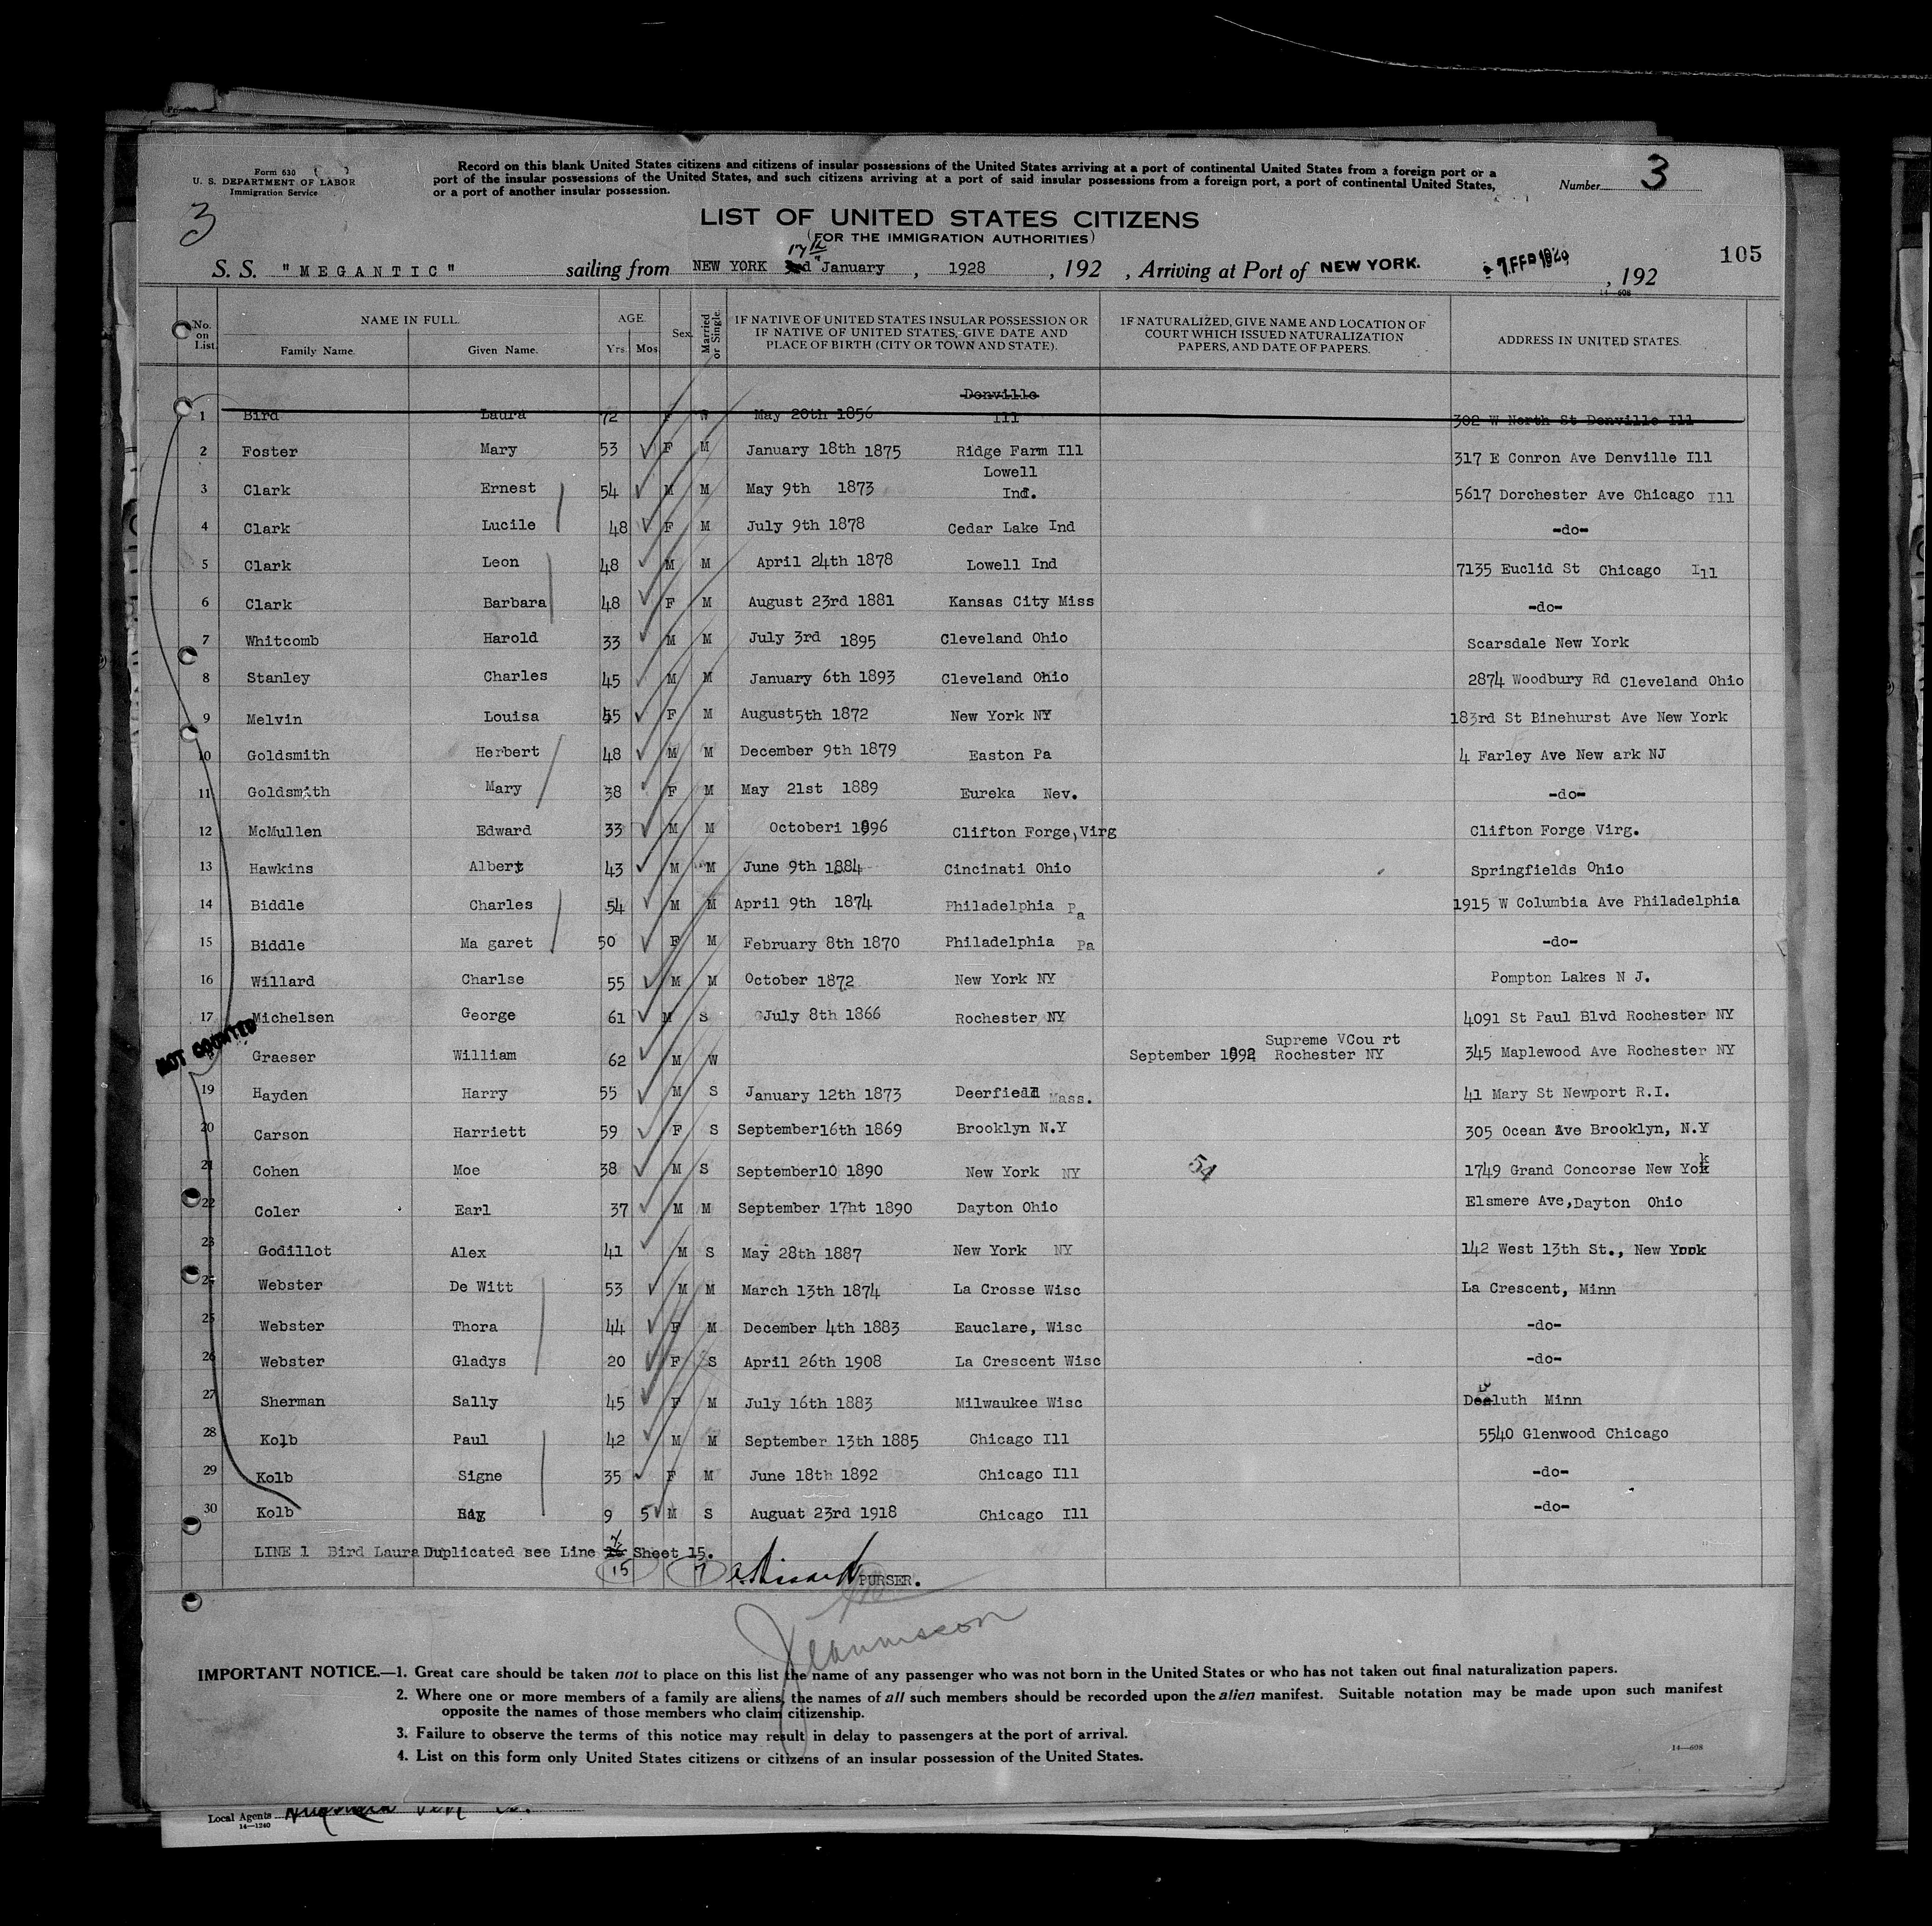 Form 630
U. S. DEPARTMENT OF LABOR
Immigration Service
3
Record on this blank United States citizens and citizens of insular possessions of the United States arriving at a port of continental United States from a foreign port or a
port of the insular possessions of the United States, and such citizens arriving at a port of said insular possessions from a foreign port, a port of continental United States,
or a port of another insular possession.
Number 3
LIST OF UNITED STATES CITIZENS
(FOR THE IMMIGRATION AUTHORITIES)
105
S. S. "MEGANTIC" sailing from NEW YORK 17th January, 1928, 192 , Arriving at Port of NEW YORK. 7. FEB 1928, 192
14—608
No. on List. NAME IN FULL. Family Name. Given Name. AGE. Yrs. Mos. Sex Married or Single. IF NATIVE OF UNITED STATES INSULAR POSSESSION OR IF NATIVE OF UNITED STATES, GIVE DATE AND PLACE OF BIRTH (CITY OR TOWN AND STATE). IF NATURALIZED, GIVE NAME AND LOCATION OF COURT WHICH ISSUED NATURALIZATION PAPERS, AND DATE OF PAPERS. ADDRESS IN UNITED STATES.
1 Bird Laura 72 F W May 20th 1856 Denville Ill 302 W North St Denville Ill
2 Foster Mary 53 F M January 18th 1875 Ridge Farm Ill 317 E Conron Ave Denville Ill
3 Clark Ernest 54 M M May 9th 1873 Lowell Ind. 5617 Dorchester Ave Chicago Ill
4 Clark Lucile 48 F M July 9th 1878 Cedar Lake Ind -do-
5 Clark Leon 48 M M April 24th 1878 Lowell Ind 7135 Euclid St Chicago Ill
6 Clark Barbara 48 F M August 23rd 1881 Kansas City Miss -do-
7 Whitcomb Harold 33 M M July 3rd 1895 Cleveland Ohio Scarsdale New York
8 Stanley Charles 45 M M January 6th 1893 Cleveland Ohio 2874 Woodbury Rd Cleveland Ohio
9 Melvin Louisa 55 F M August5th 1872 New York NY 183rd St Binehurst Ave New York
10 Goldsmith Herbert 48 M M December 9th 1879 Easton Pa 4 Farley Ave New ark NJ
11 Goldsmith Mary 38 F M May 21st 1889 Eureka Nev. -do-
12 McMullen Edward 33 M M Octoberi 1896 Clifton Forge,Virg Clifton Forge Virg.
13 Hawkins Albert 43 M M June 9th 1884 Cincinati Ohio Springfields Ohio
14 Biddle Charles 54 M M April 9th 1874 Philadelphia Pa 1915 W Columbia Ave Philadelphia
15 Biddle Ma garet 50 F M February 8th 1870 Philadelphia Pa -do-
16 Willard Charlse 55 M M October 1872 New York NY Pompton Lakes N J.
17 Michelsen George 61 M S July 8th 1866 Rochester NY 4091 St Paul Blvd Rochester NY
NOT COUNTED
Graeser William 62 M W September 1892 Supreme VCou rt Rochester NY 345 Maplewood Ave Rochester NY
19 Hayden Harry 55 M S January 12th 1873 Deerfield Mass. 41 Mary St Newport R.I.
20 Carson Harriett 59 F S September16th 1869 Brooklyn N.Y 305 Ocean Ave Brooklyn, N.Y
21 Cohen Moe 38 M S September10 1890 New York NY 54 1749 Grand Concorse New Yok
22 Coler Earl 37 M M September 17ht 1890 Dayton Ohio Elsmere Ave,Dayton Ohio
23 Godillot Alex 41 M S May 28th 1887 New York NY 142 West 13th St., New York
24 Webster De Witt 53 M M March 13th 1874 La Crosse Wisc La Crescent, Minn
25 Webster Thora 44 F M December 4th 1883 Eauclare, Wisc -do-
26 Webster Gladys 20 F S April 26th 1908 La Crescent Wisc -do-
27 Sherman Sally 45 F M July 16th 1883 Milwaukee Wisc Duluth Minn
28 Kolb Paul 42 M M September 13th 1885 Chicago Ill 5540 Glenwood Chicago
29 Kolb Signe 35 F M June 18th 1892 Chicago Ill -do-
30 Kolb Ray 9 5 M S Auguat 23rd 1918 Chicago Ill -do-
LINE 1 Bird Laura Duplicated see Line Sheet 15.
15 7 PURSER.
IMPORTANT NOTICE.—1. Great care should be taken not to place on this list the name of any passenger who was not born in the United States or who has not taken out final naturalization papers.
2. Where one or more members of a family are aliens, the names of all such members should be recorded upon the alien manifest. Suitable notation may be made upon such manifest
opposite the names of those members who claim citizenship.
3. Failure to observe the terms of this notice may result in delay to passengers at the port of arrival.
4. List on this form only United States citizens or citizens of an insular possession of the United States.
14—608
Local Agents
14—1240